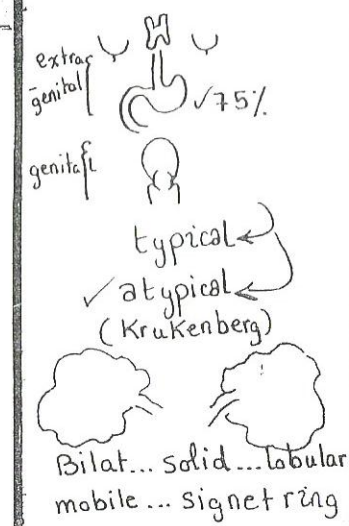 extra
genital
✓75%
genital
typical
✓ atypical
(Krukenberg)
Bilat... solid...lobular
mobile... signet ring